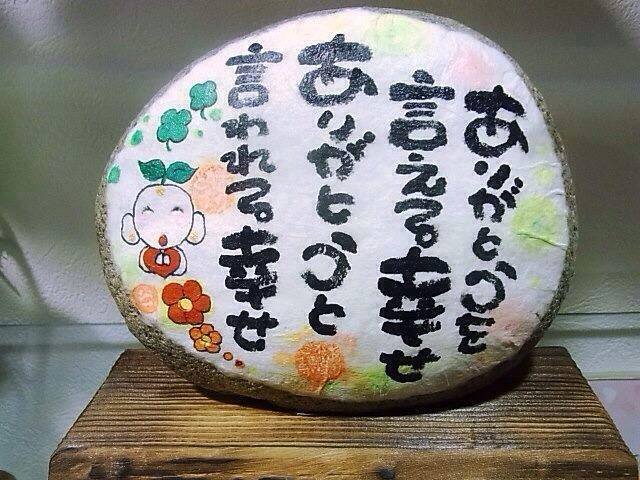 ありがとうを
言える。幸せ
ありがとうと
言われる。幸せ